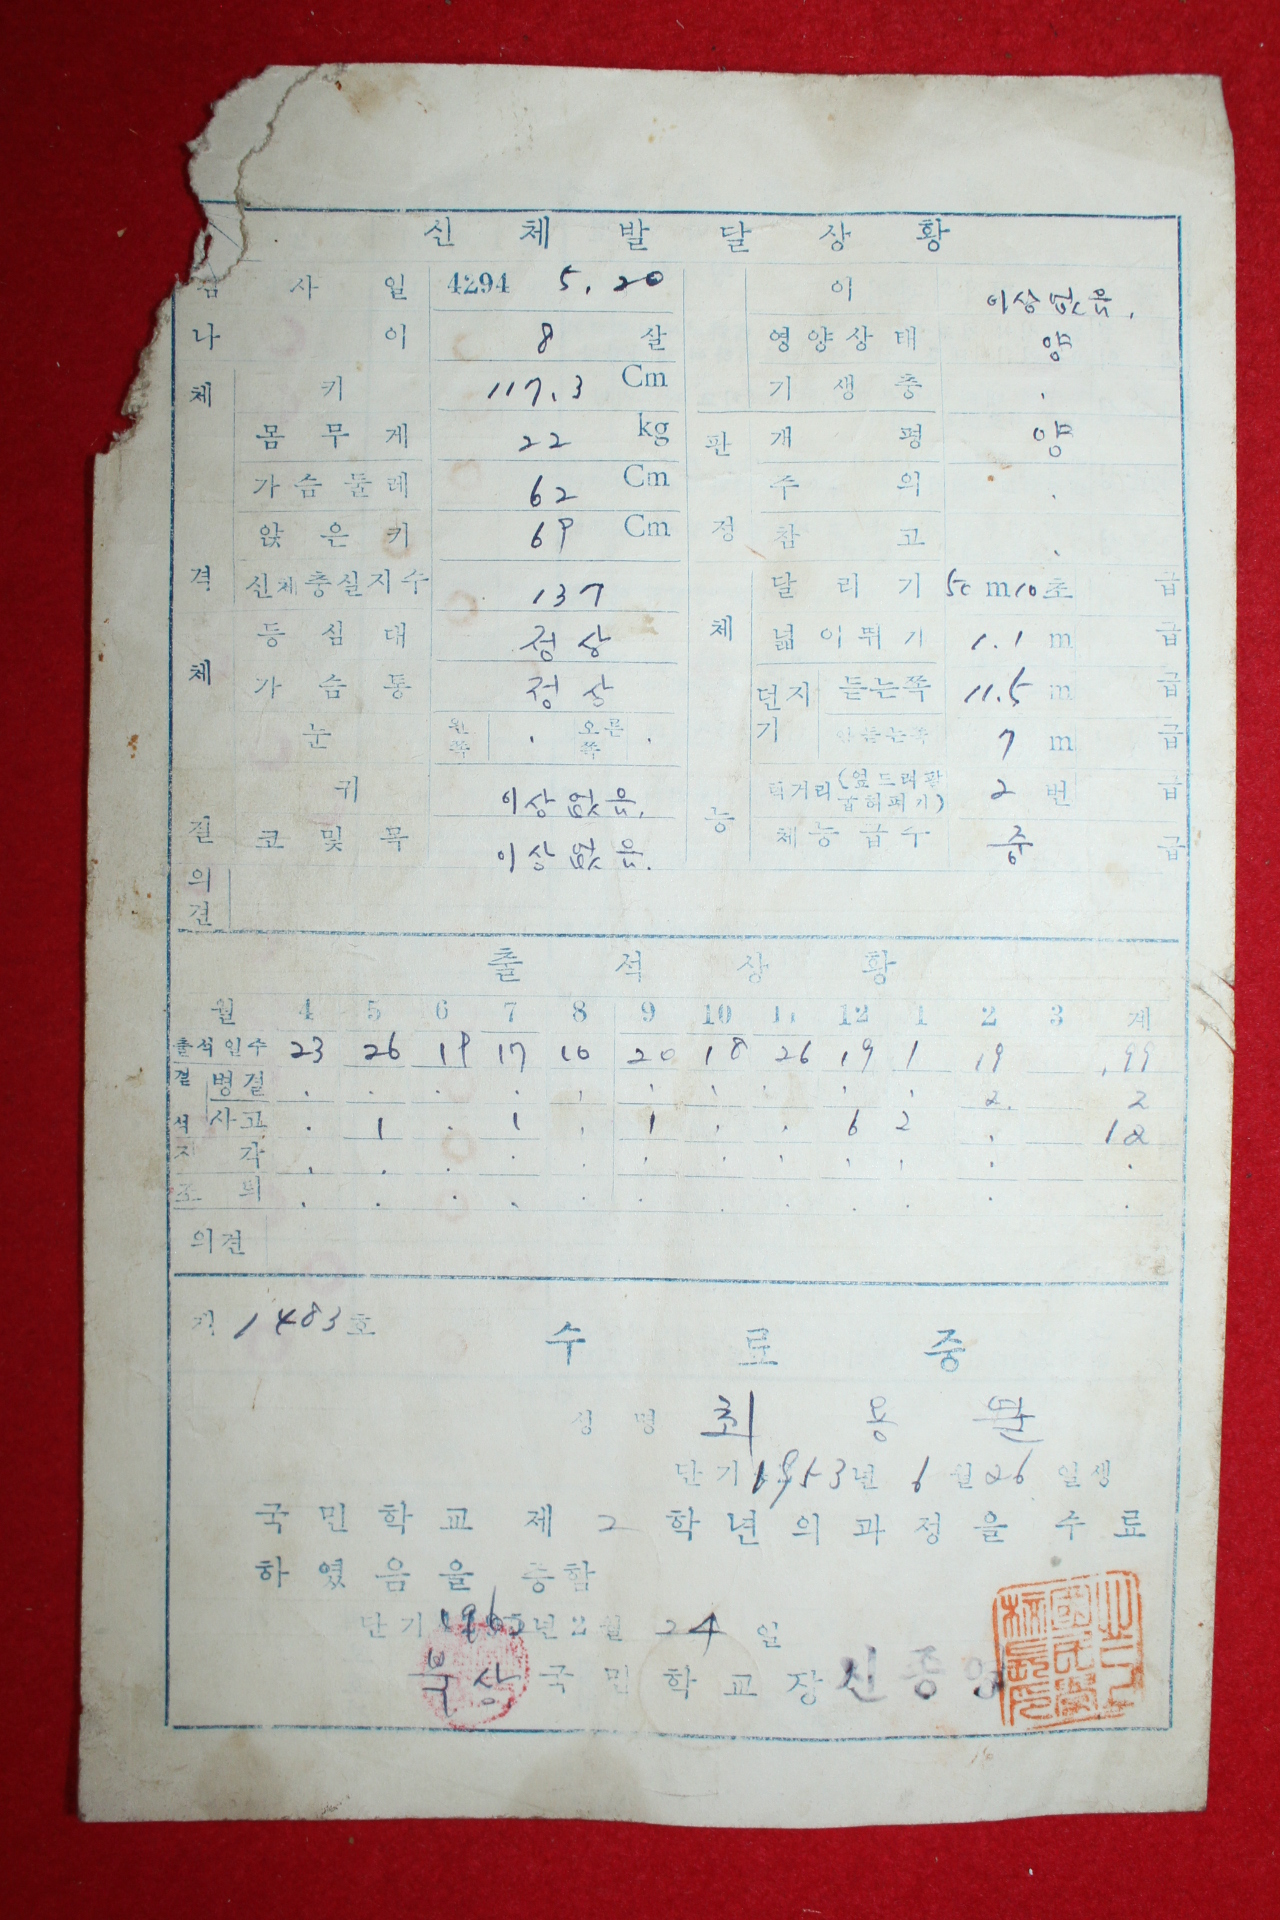 신체발달상황
검사일 4294 5. 20 이 이상없음.
나이 8 살 영양상태 양
체 키 117.3 Cm 기생충 .
몸무게 22 kg 판 개평 양
가슴둘레 62 Cm 주의 .
앉은키 69 Cm 정 참고 .
격 신체충실지수 137 달리기 50 m 10 초 급
등심대 정상 체 넓이뛰기 1.1 m 급
체 가슴통 정상 던지기 듣는쪽 11.5 m 급
눈 왼쪽 . 오른쪽 . 안듣는쪽 7 m 급
귀 이상없음. 턱거리(엎드려팔굽혀펴기) 2 번 급
질 코및목 이상없음. 능 체능급수 중 급
의견
출석상황
월 4 5 6 7 8 9 10 11 12 1 2 3 계
출석일수 23 26 19 17 10 20 18 26 19 1 19 199
결석 병결 . . . . . . . . . . 2. 2
사고 . 1 . 1 . 1 . . 6 2 . 12
지각 . . . . . . . . . . . .
조퇴 . . . . . . . . . . . .
의견
제 1483 호
수료증
성명 최용
단기 1953년 6월 26일생
국민학교 제 2 학년의과정을 수료
하였음을 증함
단기 196 년 2월 24 일
북상 국민학교장 신종영
北上國民學校長印